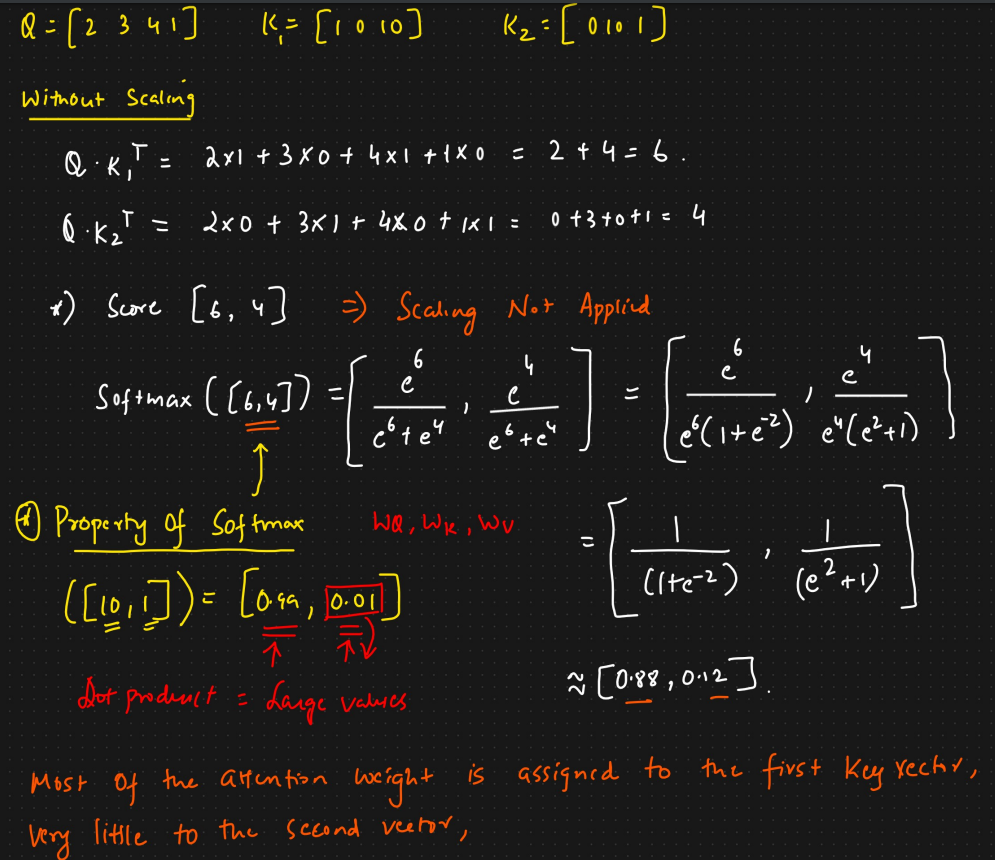 Q = [2 3 4 1] K₁ = [1 0 1 0] K₂ = [0 1 0 1]
Without Scaling
Q·K₁ᵀ = 2x1 + 3x0 + 4x1 + 1x0 = 2 + 4 = 6.
Q·K₂ᵀ = 2x0 + 3x1 + 4x0 + 1x1 = 0+3+0+1 = 4
*) Score [6, 4] ⇒ Scaling Not Applied
Softmax ([6,4]) = [e⁶/(e⁶+e⁴), e⁴/(e⁶+e⁴)] = [e⁶/e⁶(1+e⁻²), e⁴/e⁴(e²+1)]
* Property of Softmax WQ, WK, WV = [1/((1+e⁻²), 1/(e²+1)]
([10,1]) = [0.99, 0.01]
Dot product = Large values ≈ [0.88, 0.12].
Most of the attention weight is assigned to the first Key vector,
very little to the second vector,